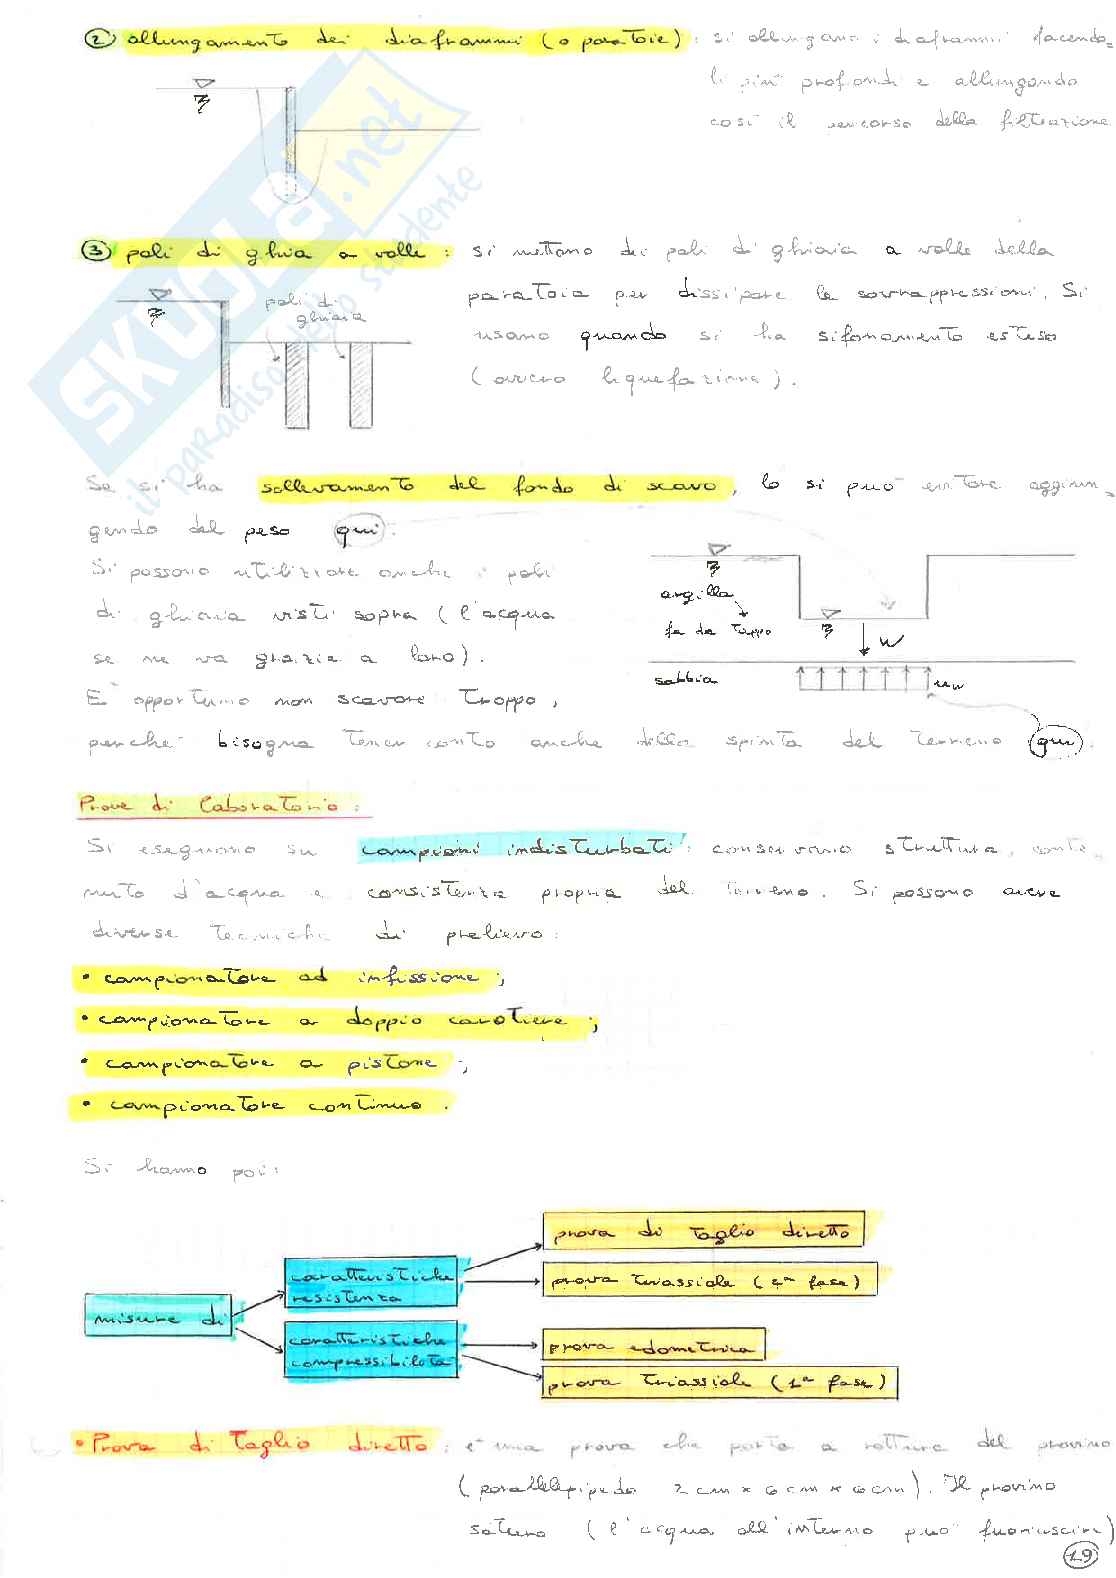 ② allungamento dei diaframmi (o paratoie): si allungano i diaframmi facendo=
li più profondi e allungando
così il percorso della filtrazione
③ pali di ghia a valle: si mettono dei pali di ghiaia a valle della
paratoia per dissipare le sovrappressioni. Si
pali di
ghiaia
usano quando si ha sifonamento esteso
(ovvero liquefazione).
SKUOLA.net
il paradiso dello studente
Se si ha sollevamento del fondo di scavo, lo si può evitare aggiun=
gendo del peso qui.
Si possono utilizzare anche i pali
di ghiaia visti sopra (l'acqua
se ne va grazie a loro).
E' opportuno non scavare troppo,
argilla
fa da tappo
W
sabbia
uw
perché bisogna tener conto anche della spinta del terreno qui.
Prove di laboratorio:
Si eseguono su campioni indisturbati: conservano struttura, conte=
nuto d'acqua e consistenza propria del terreno. Si possono avere
diverse tecniche di prelievo:
• campionatore ad infissione;
• campionatore a doppio carotiere;
• campionatore a pistone;
• campionatore continuo.
Si hanno poi:
prova di taglio diretto
caratteristiche
resistenza
prova triassiale (2ª fase)
misure di
caratteristiche
compressibilità
prova edometrica
prova triassiale (1ª fase)
• Prova di taglio diretto: è una prova che porta a rottura del provino
(parallelepipedo 2cm × 6cm × 6cm). Il provino
saturo (l'acqua all'interno può fuoriuscire)
19